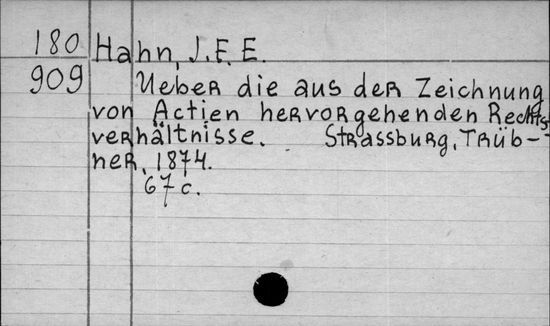 180 Hahn, J.F.E.
909 Ueber die aus der Zeichnung
von Actien hervorgehenden Rechts-
verhältnisse. Strassburg, Trüb-
ner, 1874.
67 c.